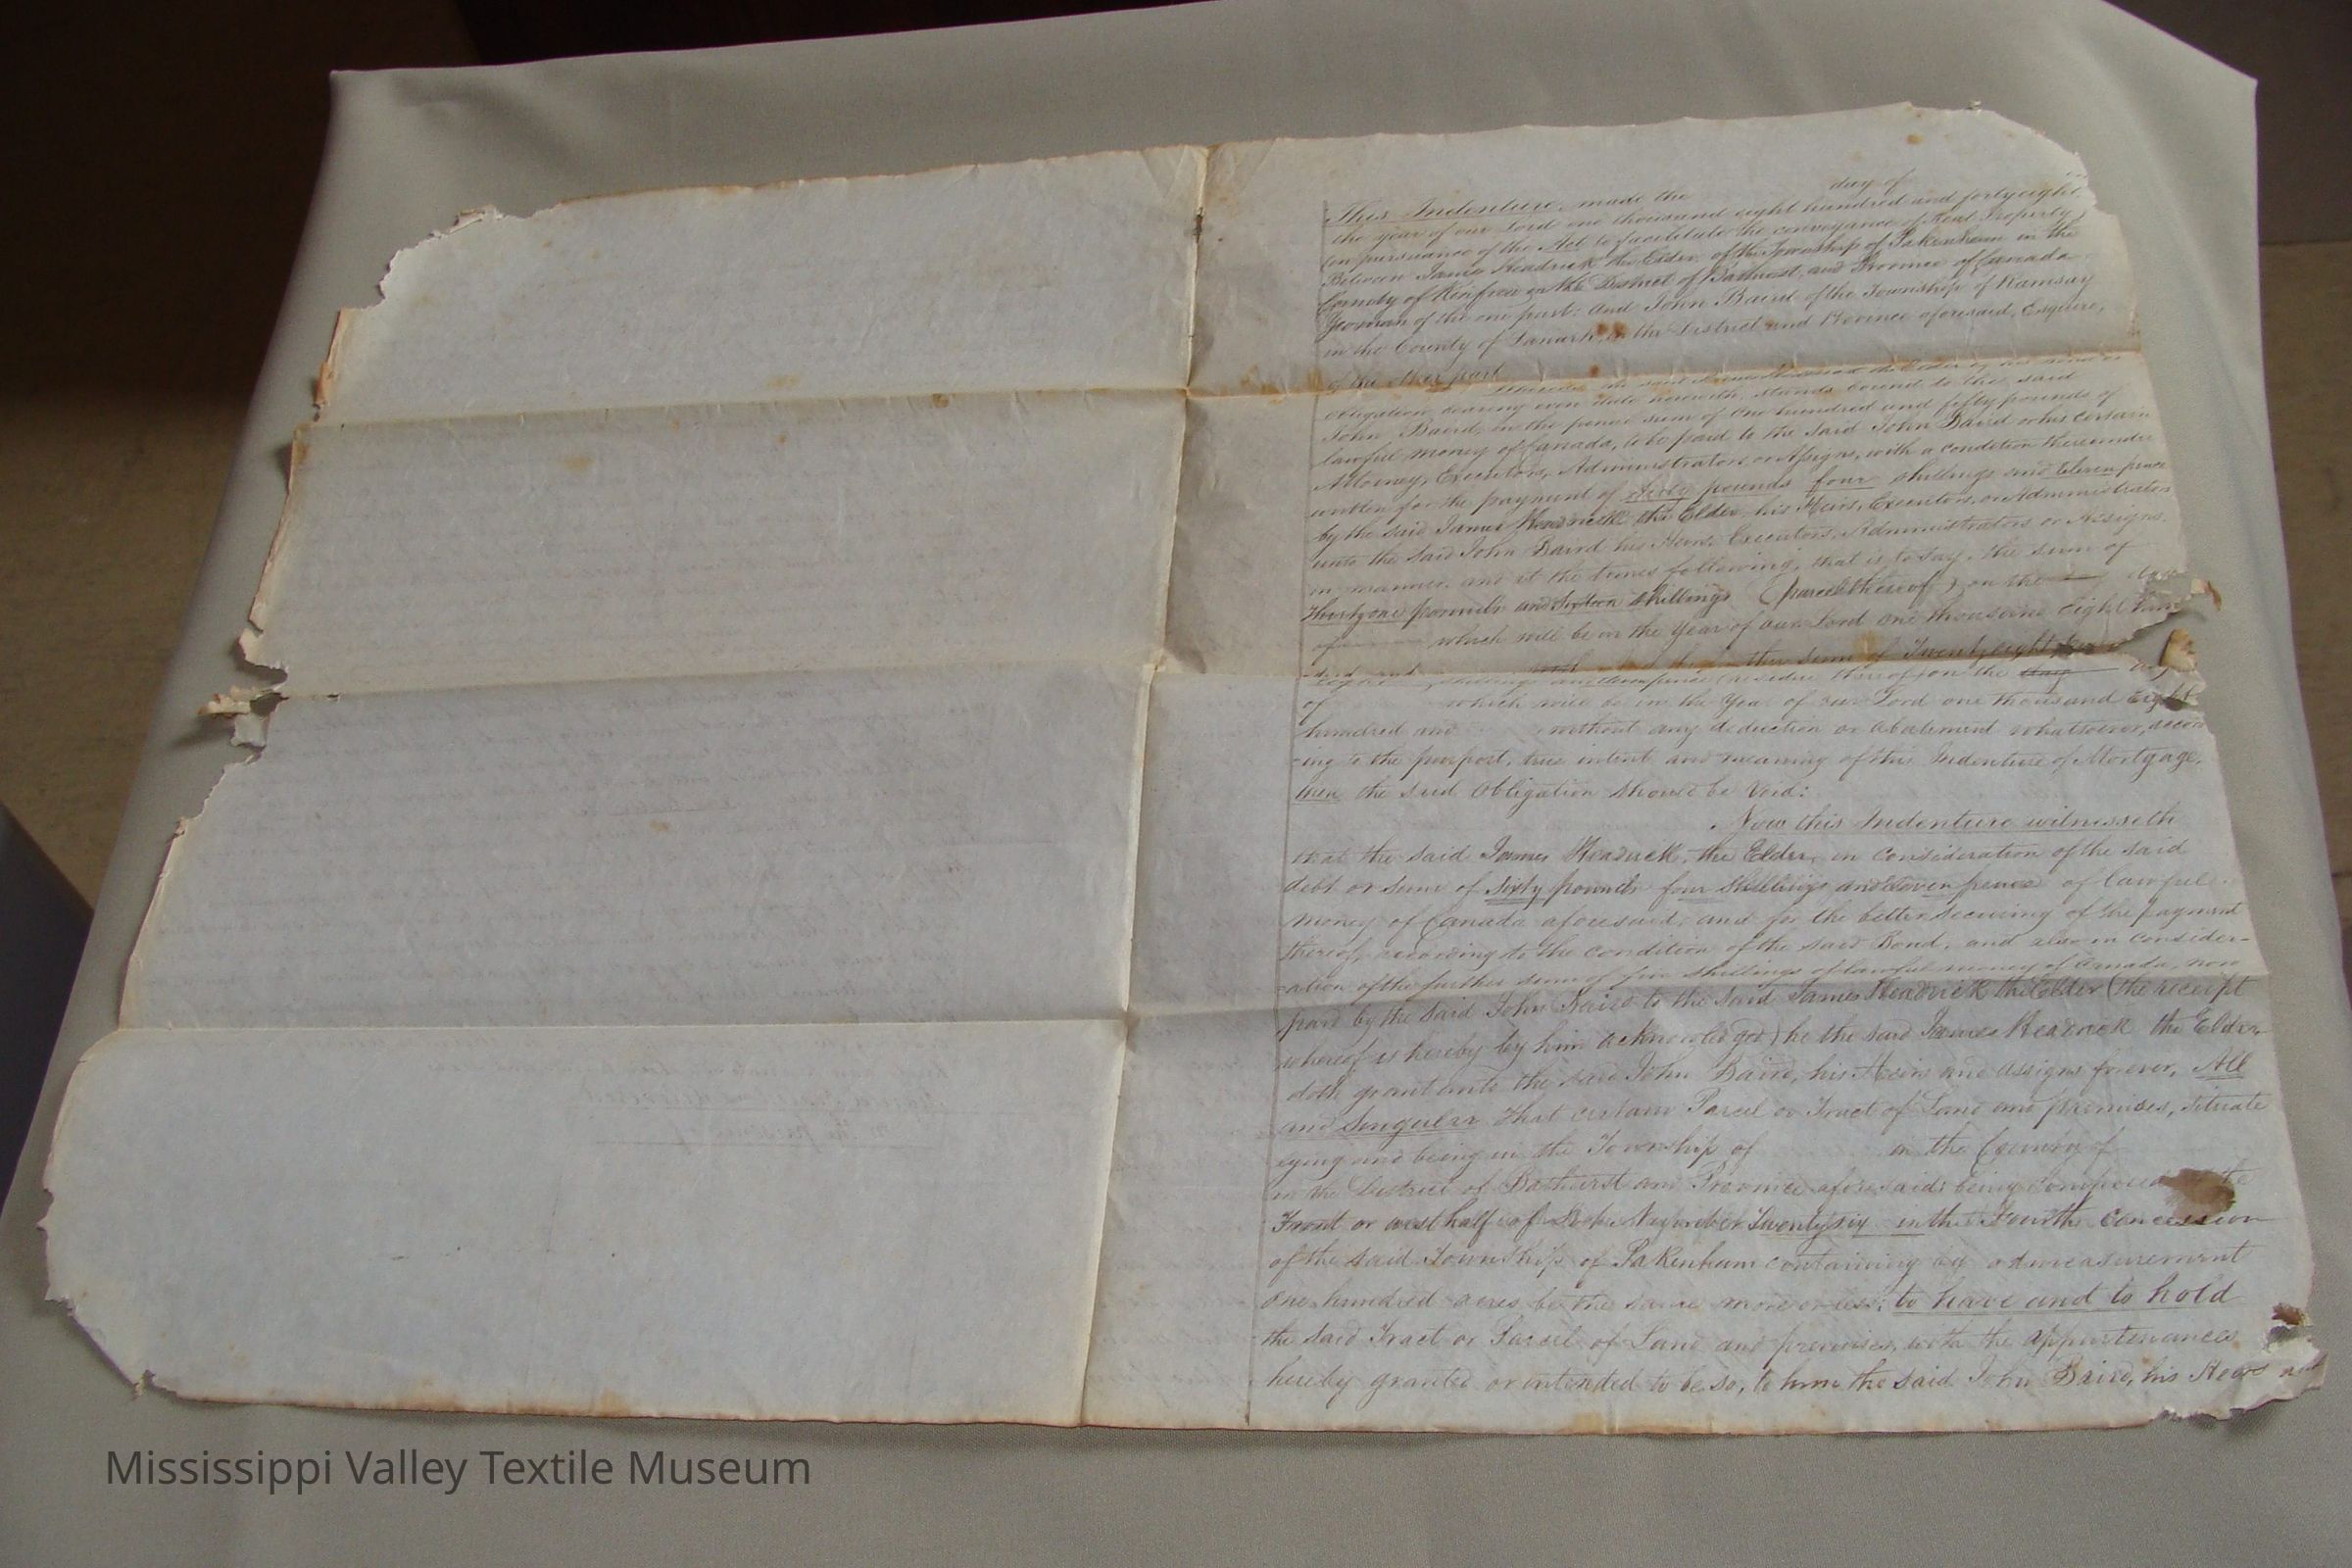 This Indenture, made the day of
the year of our Lord one thousand eight hundred and fortyeight
(in pursuance of the Act to facilitate the conveyance of Real Property)
Between James Headrick the Elder, of the Township of Pakenham in the
County of Renfrew in the District of Bathurst, and Province of Canada
Yeoman of the one part: and John Baird of the Township of Ramsay
in the County of Lanark, in the District and Province aforesaid, Esquire,
of the other part
the said James Headrick the Elder
obligation bearing even date herewith, stands bound to the said
John Baird, in the penal sum of one hundred and fifty pounds of
lawful money of Canada, to be paid to the said John Baird or his certain
Attorney, Executors, Administrators or Assigns, with a condition thereunder
written for the payment of sixty pounds four shillings and Eleven pence
by the said James Headrick the Elder his Heirs, Executors, or Administrators
unto the said John Baird his Heirs, Executors, Administrators or Assigns
in manner, and at the times following, that is to say, the sum of
Thirty one pounds and Sixteen shillings (parcel thereof) on the day
of which will be in the Year of our Lord one thousand Eight hun
dred and the sum of Twenty eight
Eight shillings and Eleven pence (residue thereof) on the day
of which will be in the Year of our Lord one thousand Eight
hundred and without any deduction or abatement whatsoever, accor
-ing to the purport, true intent and meaning of this Indenture of Mortgage,
then the said Obligation should be Void:
Now this Indenture witnesseth
that the said James Headrick, the Elder, in Consideration of the said
debt or sum of sixty pounds four shillings and Eleven pence of lawful
money of Canada aforesaid, and for the better securing of the payment
thereof, according to the condition of the said Bond, and also in consider-
-ation of the further sum of five shillings of lawful money of Canada, now
paid by the said John Baird to the said James Headrick the Elder (the receipt
whereof is hereby by him acknowledged) he the said James Headrick the Elder
doth grant unto the said John Baird, his Heirs and assigns forever, All
and Singular that certain Parcel or Tract of Land and premises, situate
lying and being in the Township of in the County of
in the District of Bathurst and Province aforesaid: being Composed
Front or west half of Lot Number Twenty six in the Fourth concession
of the said Township of Pakenham containing by admeasurement
one hundred acres be the same more or less: to have and to hold
the said Tract or Parcel of Land and premises, with the appurtenances
hereby granted or intended to be so, to him the said John Baird, his Heirs and
Mississippi Valley Textile Museum